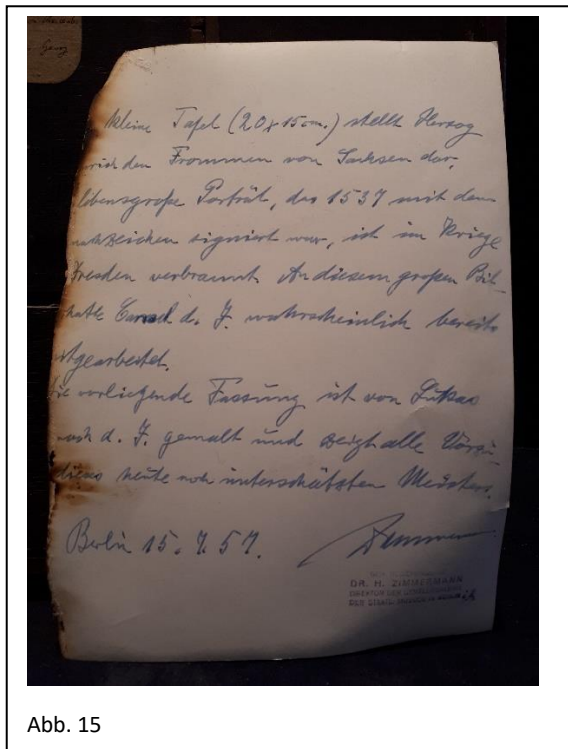 kleine Tafel (20 x 15 cm.) stellt Herzog
rich den Frommen von Sachsen dar.
lebensgroße Porträt, das 1537 mit dem
zeichen signiert war, ist im Kriege
Dresden verbrannt. An diesem großen Bil-
hatte Cranach d. J. wahrscheinlich bereits
tgearbeitet.
ie vorliegende Fassung ist von Lukas
ach d. J. gemalt und zeigt alle Vorzü-
dieses heute noch unterschätzten Meisters.
Berlin 15. 7. 57.
DR. H. ZIMMERMANN
DIREKTOR DER
DER STAATL. MUSEEN
Abb. 15